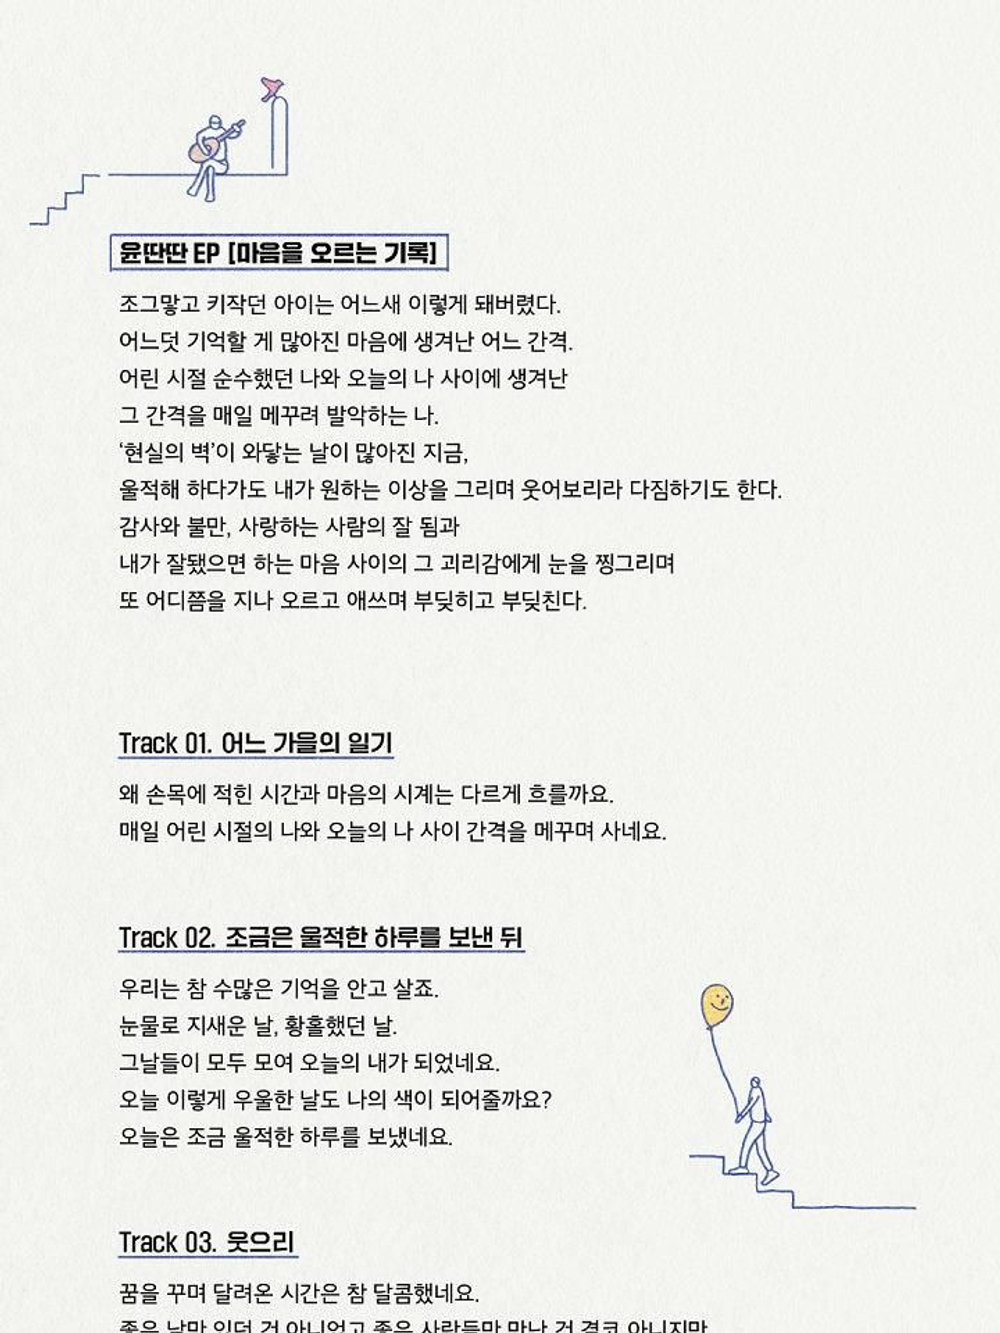 윤딴딴 EP [마음을 오르는 기록]
조그맣고 키작던 아이는 어느새 이렇게 돼버렸다.
어느덧 기억할 게 많아진 마음에 생겨난 어느 간격.
어린 시절 순수했던 나와 오늘의 나 사이에 생겨난
그 간격을 매일 메꾸려 발악하는 나.
‘현실의 벽’이 와닿는 날이 많아진 지금,
울적해 하다가도 내가 원하는 이상을 그리며 웃어보리라 다짐하기도 한다.
감사와 불만, 사랑하는 사람의 잘 됨과
내가 잘됐으면 하는 마음 사이의 그 괴리감에게 눈을 찡그리며
또 어디쯤을 지나 오르고 애쓰며 부딪히고 부딪친다.
Track 01. 어느 가을의 일기
왜 손목에 적힌 시간과 마음의 시계는 다르게 흐를까요.
매일 어린 시절의 나와 오늘의 나 사이 간격을 메꾸며 사네요.
Track 02. 조금은 울적한 하루를 보낸 뒤
우리는 참 수많은 기억을 안고 살죠.
눈물로 지새운 날, 황홀했던 날.
그날들이 모두 모여 오늘의 내가 되었네요.
오늘 이렇게 우울한 날도 나의 색이 되어줄까요?
오늘은 조금 울적한 하루를 보냈네요.
Track 03. 웃으리
꿈을 꾸며 달려온 시간은 참 달콤했네요.
좋은 날만 있던 건 아니었고 좋은 사람들만 만난 건 결코 아니지만